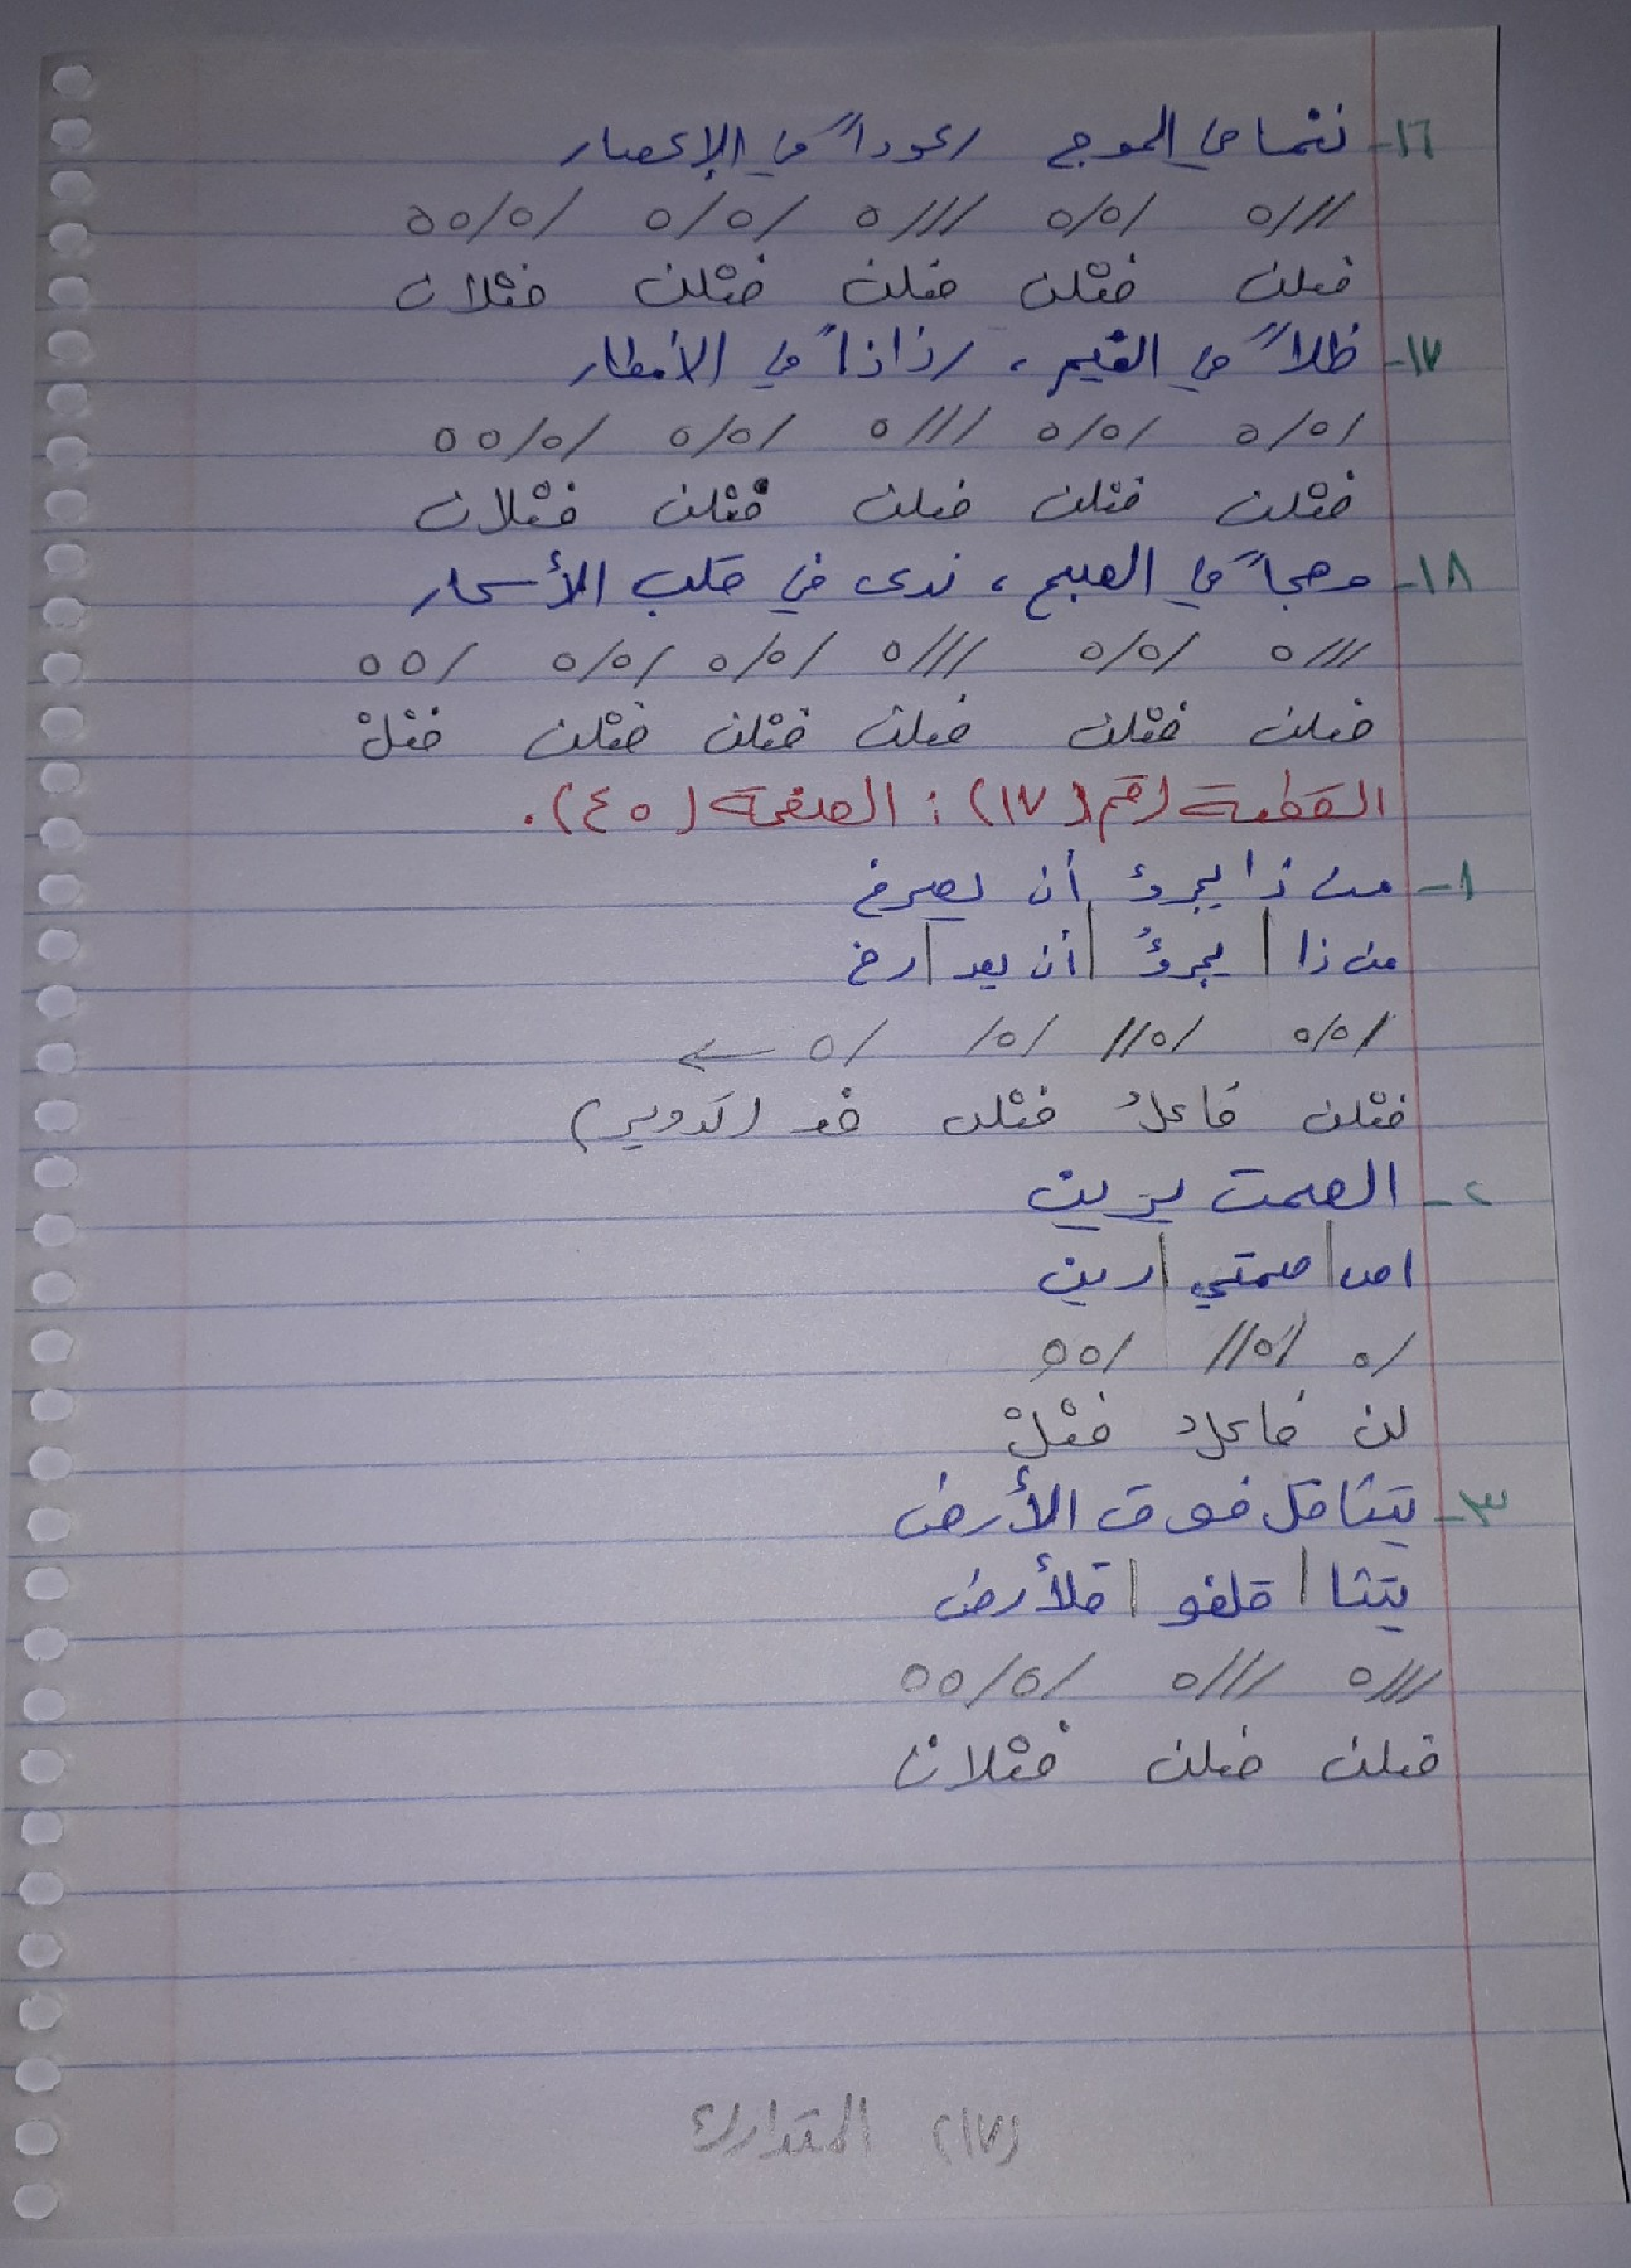 ١٦- نغما في الموج رعوداً في الإعصار
///ه /ه/ه ///ه /ه/ه /ه/هه
فعلن فعْلن فعلن فعْلن فعْلان
١٧- ظلاً في الغيم، رذاذاً في الأمطار
/ه/ه /ه/ه ///ه /ه/ه /ه/هه
فعْلن فعْلن فعلن فعْلن فعْلان
١٨- وهجاً في الصبح، ندى في قلب الأسحار
///ه /ه/ه ///ه /ه/ه /ه/ه /هه
فعلن فعْلن فعلن فعْلن فعْلن فعْلْ
القطعة رقم (١٧) : الصفحة (٤٥).
١- من ذا يجرؤ أن يصرخ
من ذا | يجرؤُ | أن يصـ | رخ
/ه/ه /ه// /ه/ /ه ←
فعْلن فاعلُ فعْلن فعـ (تدوير)
٢- الصمت يرين
اصـ | صمتي | رين
/ه /ه// /هه
لن فاعلُ فعْلْ
٣- يتثاقل فوق الأرض
يتثا | قلفو | قلأرض
///ه ///ه /ه/هه
فعلن فعلن فعْلان
(١٧) المتدارك